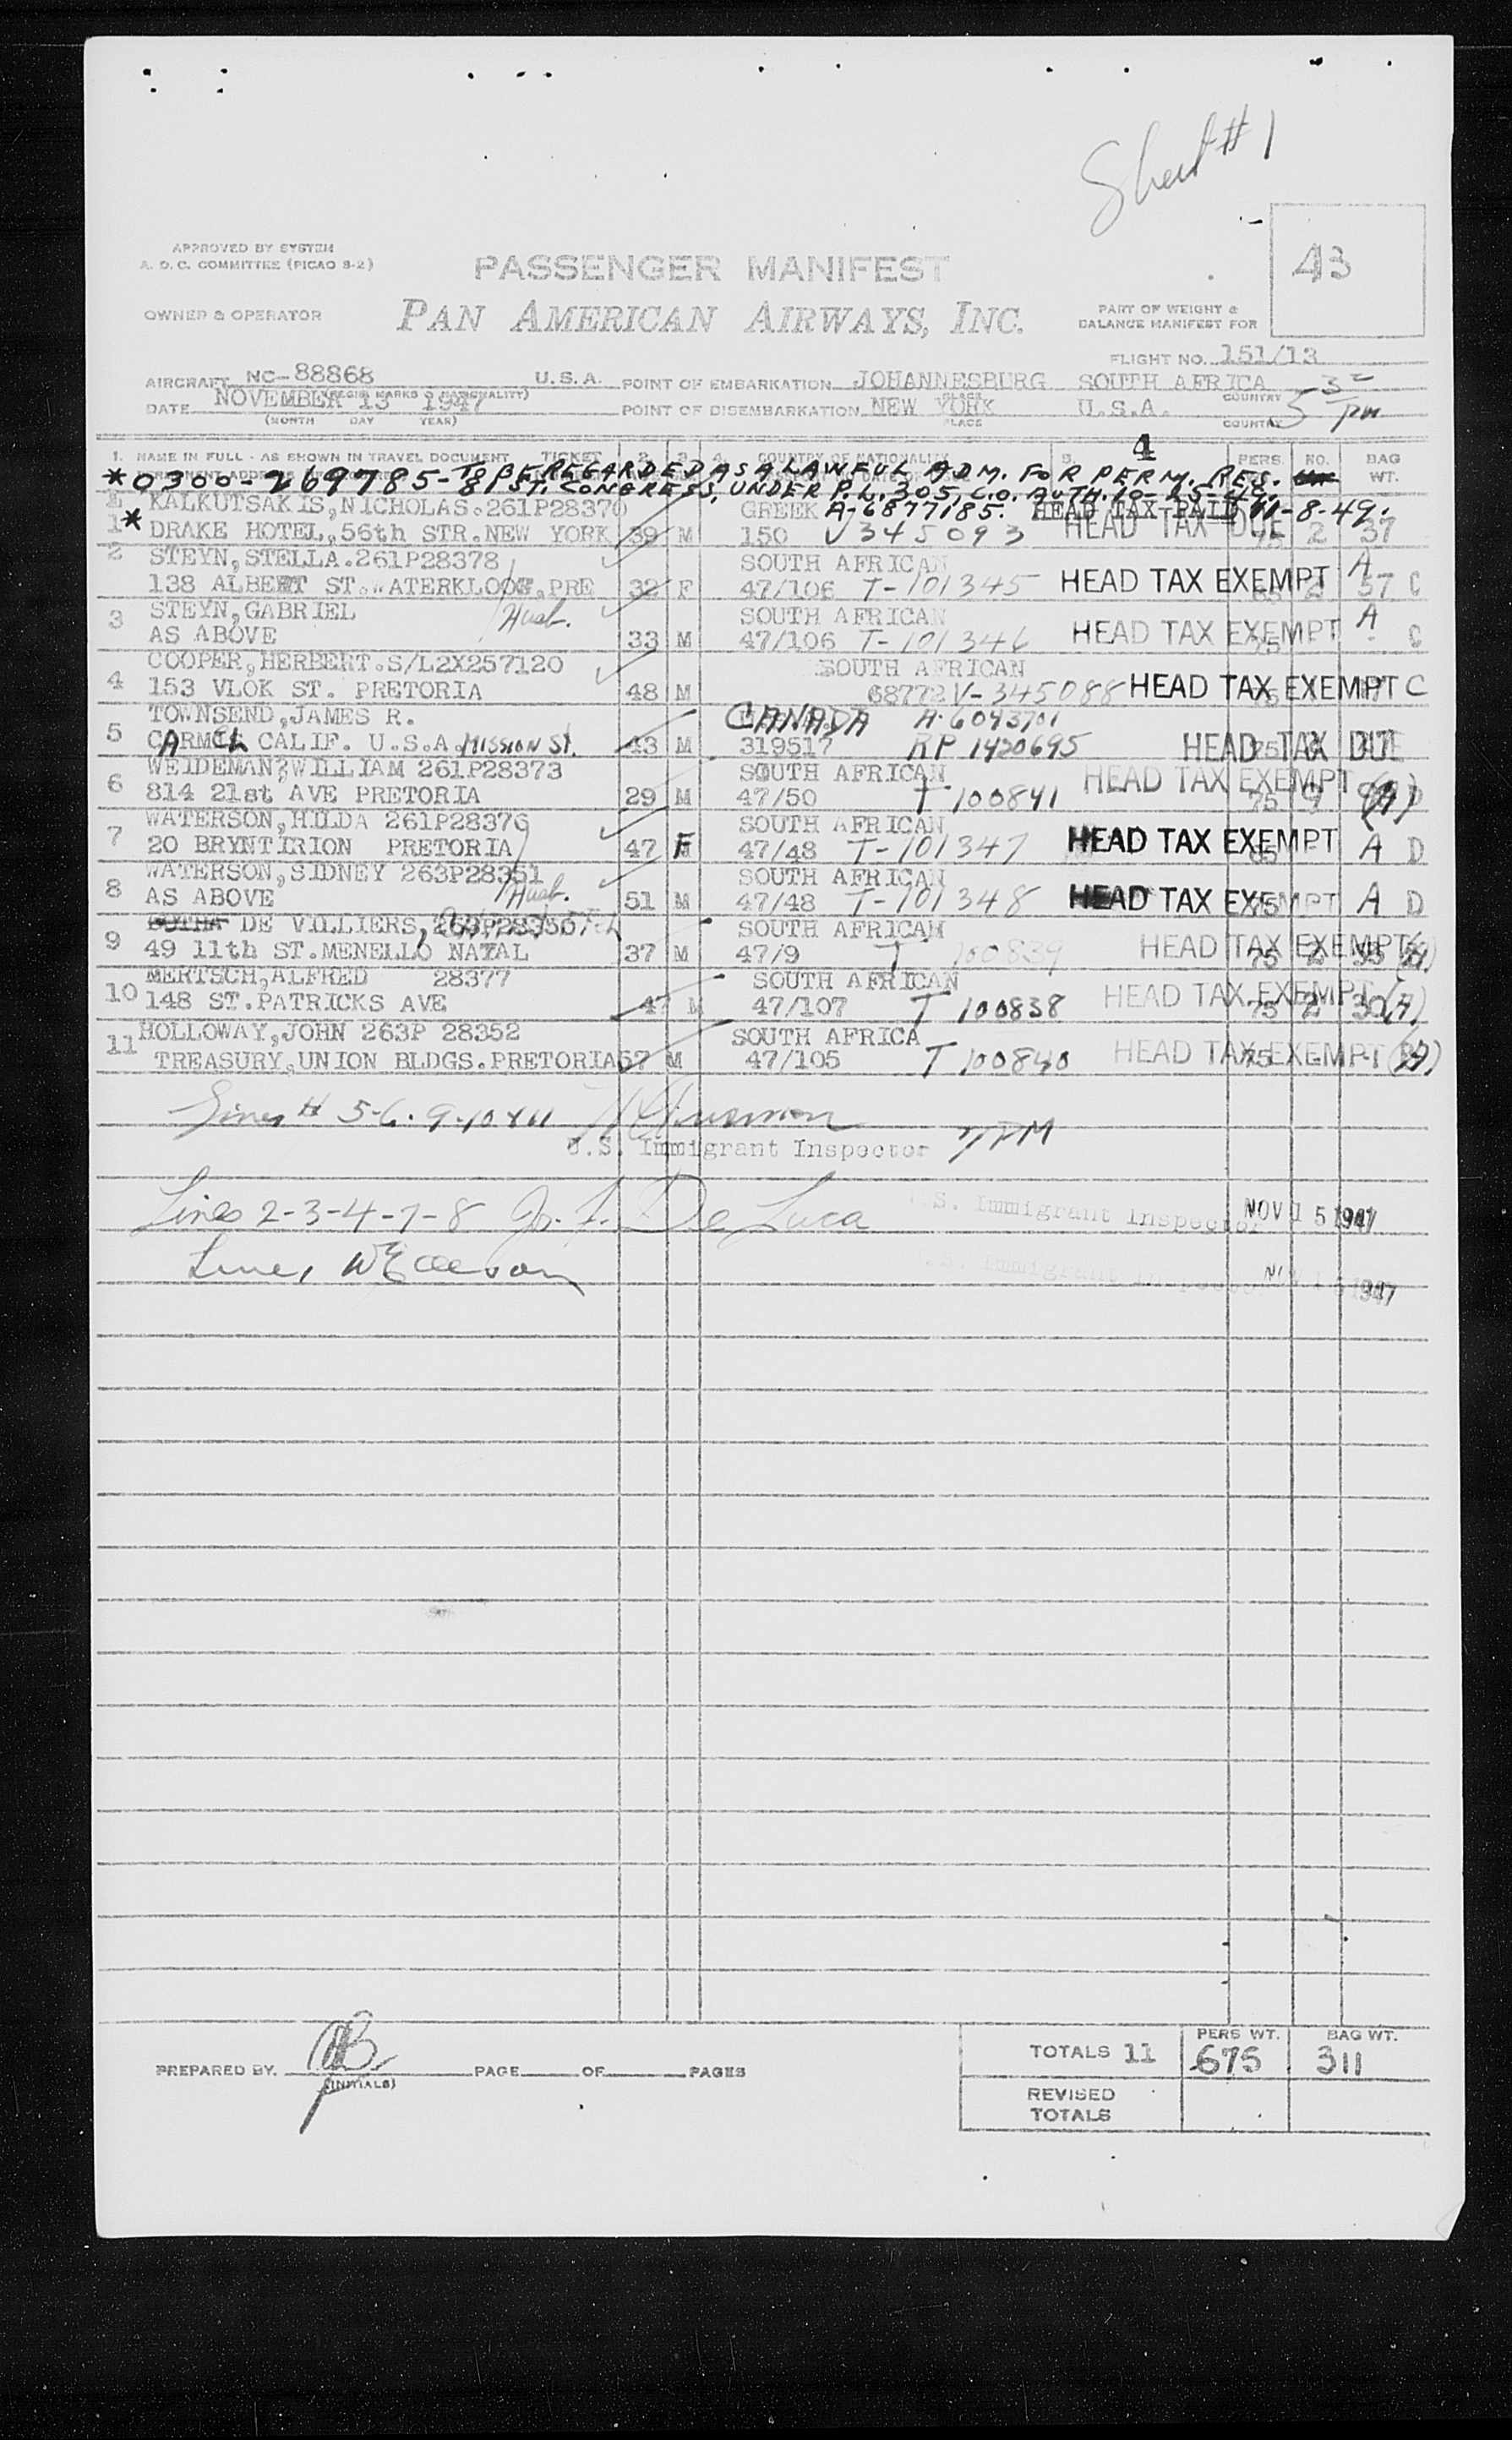 Sheet # 1
APPROVED BY SYSTEM
A. O. C. COMMITTEE (PICAO 8-2)
PASSENGER MANIFEST
43
OWNER & OPERATOR
PAN AMERICAN AIRWAYS, INC.
PART OF WEIGHT &
BALANCE MANIFEST FOR
FLIGHT NO. 151/13
AIRCRAFT NC-88868 U.S.A. POINT OF EMBARKATION JOHANNESBURG SOUTH AFRICA
(REGIS. MARKS & NATIONALITY) PLACE COUNTRY
DATE NOVEMBER 13 1947 POINT OF DISEMBARKATION NEW YORK U.S.A. 5 32 PM
(MONTH DAY YEAR) PLACE COUNTRY
4
1. NAME IN FULL - AS SHOWN IN TRAVEL DOCUMENT TICKET 2. 3. 4. COUNTRY OF NATIONALITY 5. PERS. NO. BAG
WT.
*0300-269785-TO BE REGARDED AS A LAWFUL ADM. FOR PERM. RES.
81ST. CONGRESS, UNDER P.L. 305, C.O. AUTH. 10-25-49.
1 KALKUTSAKIS, NICHOLAS.261P28370 GREEK A-6877185. HEAD TAX PAID 11-8-49.
* DRAKE HOTEL, 56th STR. NEW YORK 39 M 150 V345093 HEAD TAX DUE 75 2 37
2 STEYN, STELLA.261P28378 SOUTH AFRICAN
138 ALBERT ST. WATERKLOOF, PRE 32 F 47/106 T-101345 HEAD TAX EXEMPT A 57 C
3 STEYN, GABRIEL Husb. SOUTH AFRICAN
AS ABOVE 33 M 47/106 T-101346 HEAD TAX EXEMPT 75 A - C
4 COOPER, HERBERT.S/L2X257120 SOUTH AFRICAN
153 VLOK ST. PRETORIA 48 M 68772 V-345088 HEAD TAX EXEMPT C
5 TOWNSEND, JAMES R. CANADA A-6043701
CARMEL CALIF. U.S.A. MISSION ST. 43 M 319517 RP 1420695 HEAD TAX DUE
6 WEIDEMAN, WILLIAM 261P28373 SOUTH AFRICAN
814 21st AVE PRETORIA 29 M 47/50 T 100841 HEAD TAX EXEMPT 75 (A) D
7 WATERSON, HILDA 261P28376 SOUTH AFRICAN
20 BRYNTIRION PRETORIA 47 F 47/48 T-101347 HEAD TAX EXEMPT A D
8 WATERSON, SIDNEY 263P28351 Husb. SOUTH AFRICAN
AS ABOVE 51 M 47/48 T-101348 HEAD TAX EXEMPT 75 A D
9 DE VILLIERS, SOUTH AFRICAN
49 11th ST. MENELLO NATAL 37 M 47/9 T 100839 HEAD TAX EXEMPT 75 2 (A)
10 MERTSCH, ALFRED 28377 SOUTH AFRICAN
148 ST. PATRICKS AVE 47 M 47/107 T 100838 HEAD TAX EXEMPT 75 2 30 (A)
11 HOLLOWAY, JOHN 263P 28352 SOUTH AFRICA
TREASURY, UNION BLDGS. PRETORIA 57 M 47/105 T 100840 HEAD TAX EXEMPT 75 (A)
Lines # 5-6-9-10 & 11
U.S. Immigrant Inspector
Lines 2-3-4-7-8 De Luca U.S. Immigrant Inspector NOV 15 1947
Line 1 U.S. Immigrant Inspector NOV 15 1947
TOTALS 11 PERS WT. 675 BAG WT. 311
PREPARED BY. PAGE OF PAGES
(INITIALS)
REVISED
TOTALS